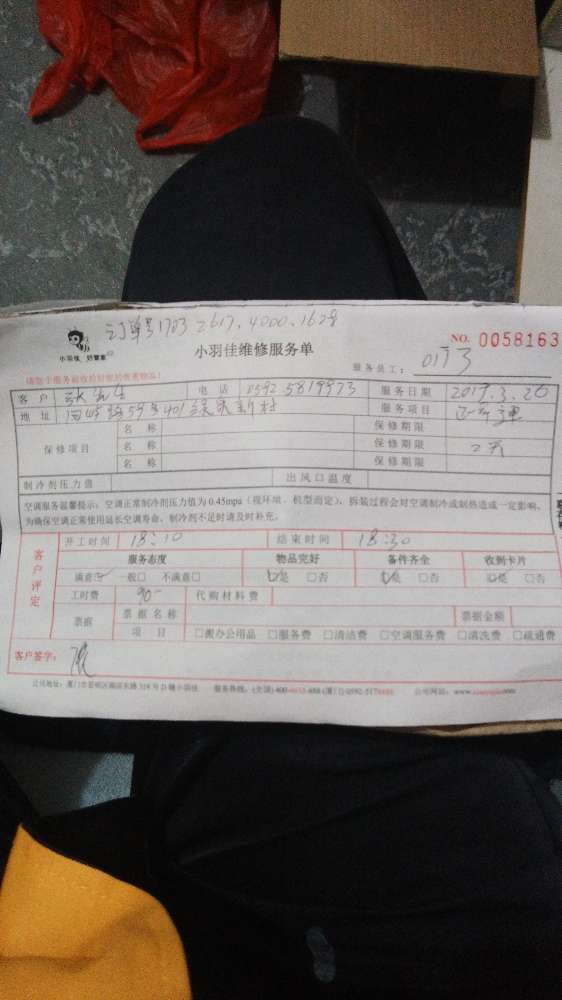 订单号1703 2617.4000.162号
小羽佳 好管家
小羽佳维修服务单
NO. 0058163
服务员工:
请您于服务前收拾好您的贵重物品!
客 户 张先生 电 话 0592 5819973 服务日期 2017.3.26
地 址 59号401 新村 服务项目
保修项目 名 称 保修期限
名 称 保修期限
名 称 保修期限
制冷剂压力值 出风口温度
空调服务温馨提示:空调正常制冷剂压力值为0.45mpa(视环境、机型而定)、拆装过程会对空调制冷或制热造成一定影响,
为确保空调正常使用延长空调寿命,制冷剂不足时请及时补充。
客户评定
开工时间 18:10 结束时间 18:30
服务态度 物品完好 备件齐全 收到卡片
满意 一般□ 不满意□ 是 □否 是 □否 是 □否
工时费 90- 代购材料费
票据 票据名称 票据金额
项 目 □搬办公用品 □服务费 □清洁费 □空调服务费 □清洗费 □疏通费
客户签字:
公司地址:厦门市 服务热线:(全国)400 公司网站:www.